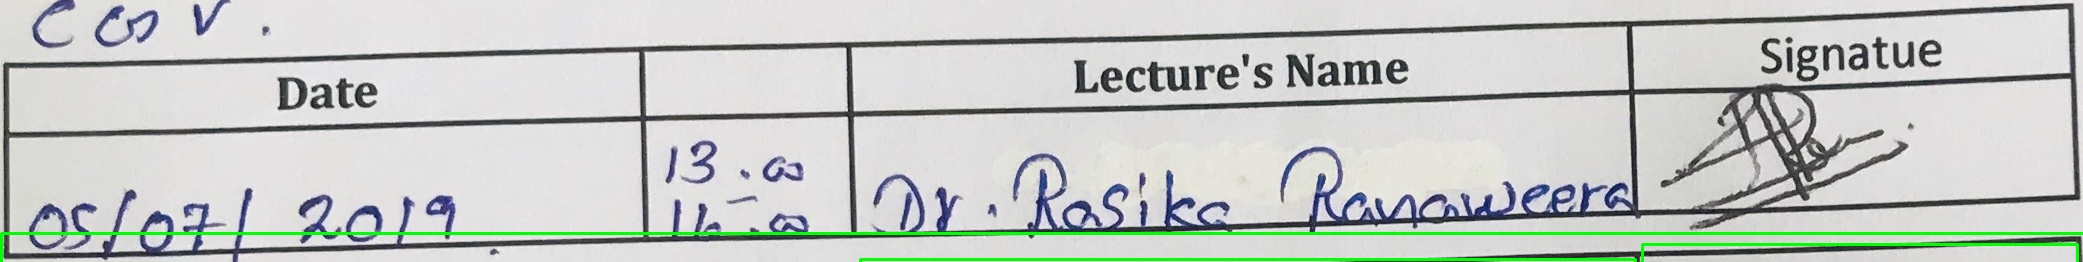 Date Lecture's Name Signatue
13.00
05/07/2019. 16.00 Dr. Rasika Ranaweera